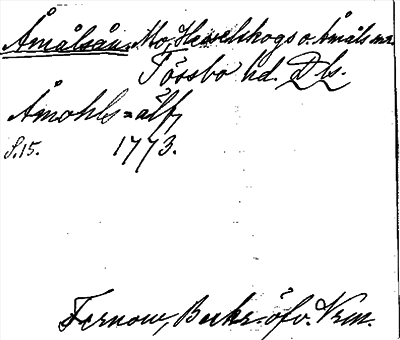 Åmålsån, Mo, Hesselskogs o. Åmåls snr.
Tössbo hd. Dls.
Åmohls=älf,
S.15. 1773.
Fernow, Beskr. öfv. Vrm.